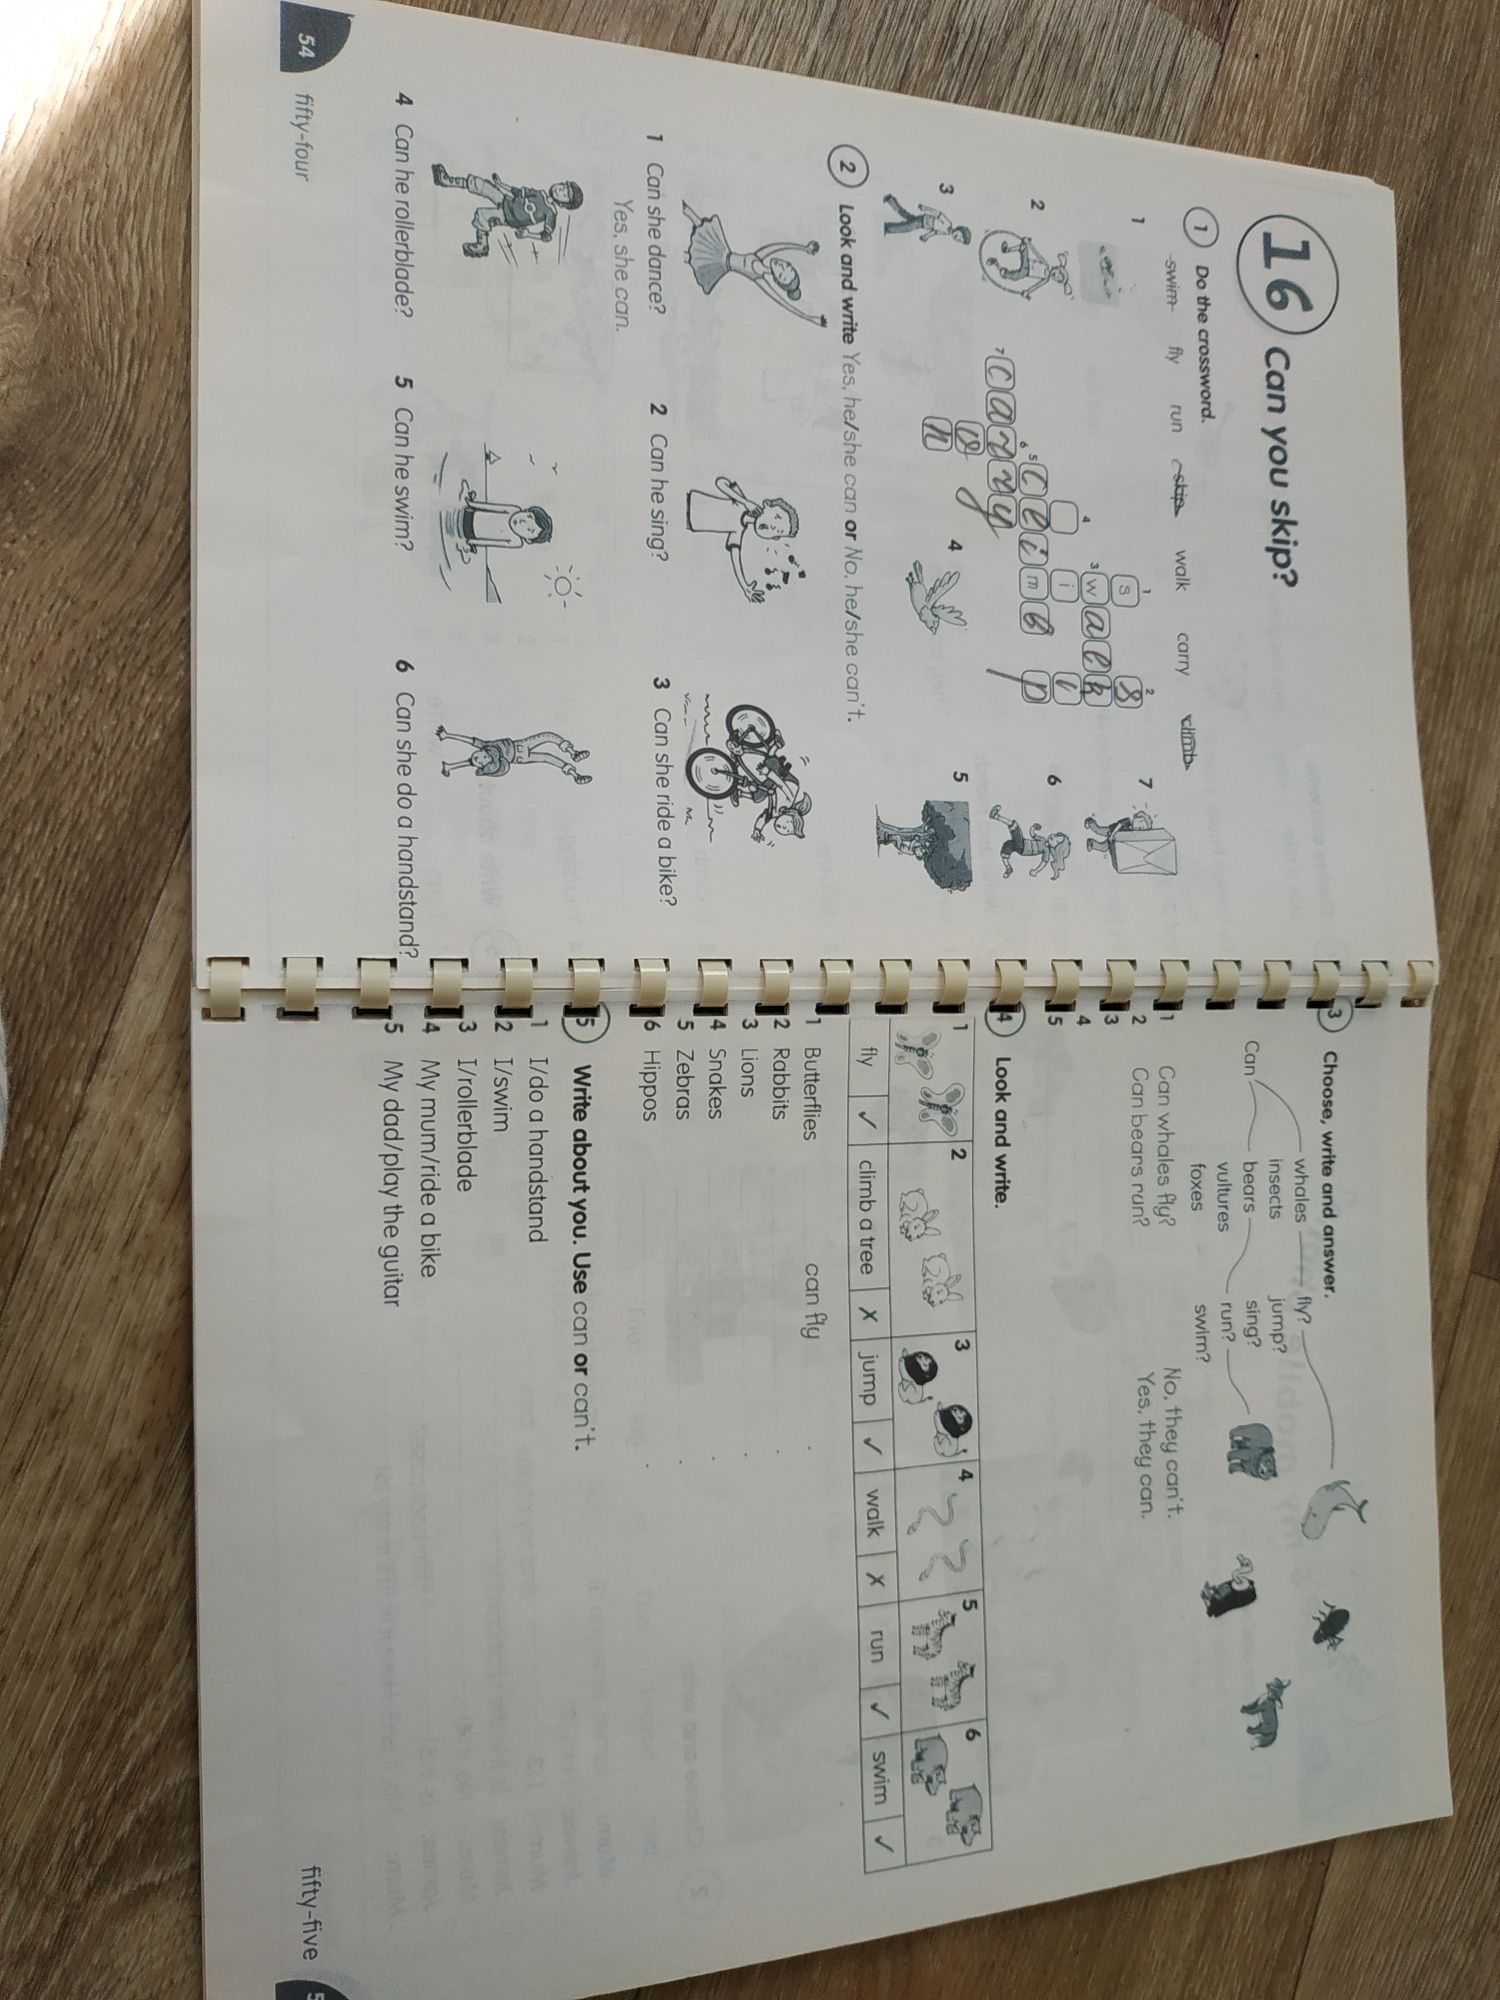 16 Can you skip?
1 Do the crossword.
swim fly run skip walk carry climb
1
2
3
4
5
6
7
1 s
2 s
3 walk
4
i
i
5 climb
p
6
7 carry
y
n
2 Look and write Yes, he/she can or No, he/she can't.
1 Can she dance?
Yes, she can.
2 Can he sing?
3 Can she ride a bike?
4 Can he rollerblade?
5 Can he swim?
6 Can she do a handstand?
54 fifty-four
3 Choose, write and answer.
Can
whales
insects
bears
vultures
foxes
fly?
jump?
sing?
run?
swim?
1 Can whales fly? No, they can't.
2 Can bears run? Yes, they can.
3
4
5
4 Look and write.
1 2 3 4 5 6
fly ✓ climb a tree X jump ✓ walk X run ✓ swim ✓
1 Butterflies can fly .
2 Rabbits .
3 Lions .
4 Snakes .
5 Zebras .
6 Hippos .
5 Write about you. Use can or can't.
1 I/do a handstand
2 I/swim
3 I/rollerblade
4 My mum/ride a bike
5 My dad/play the guitar
fifty-five 5